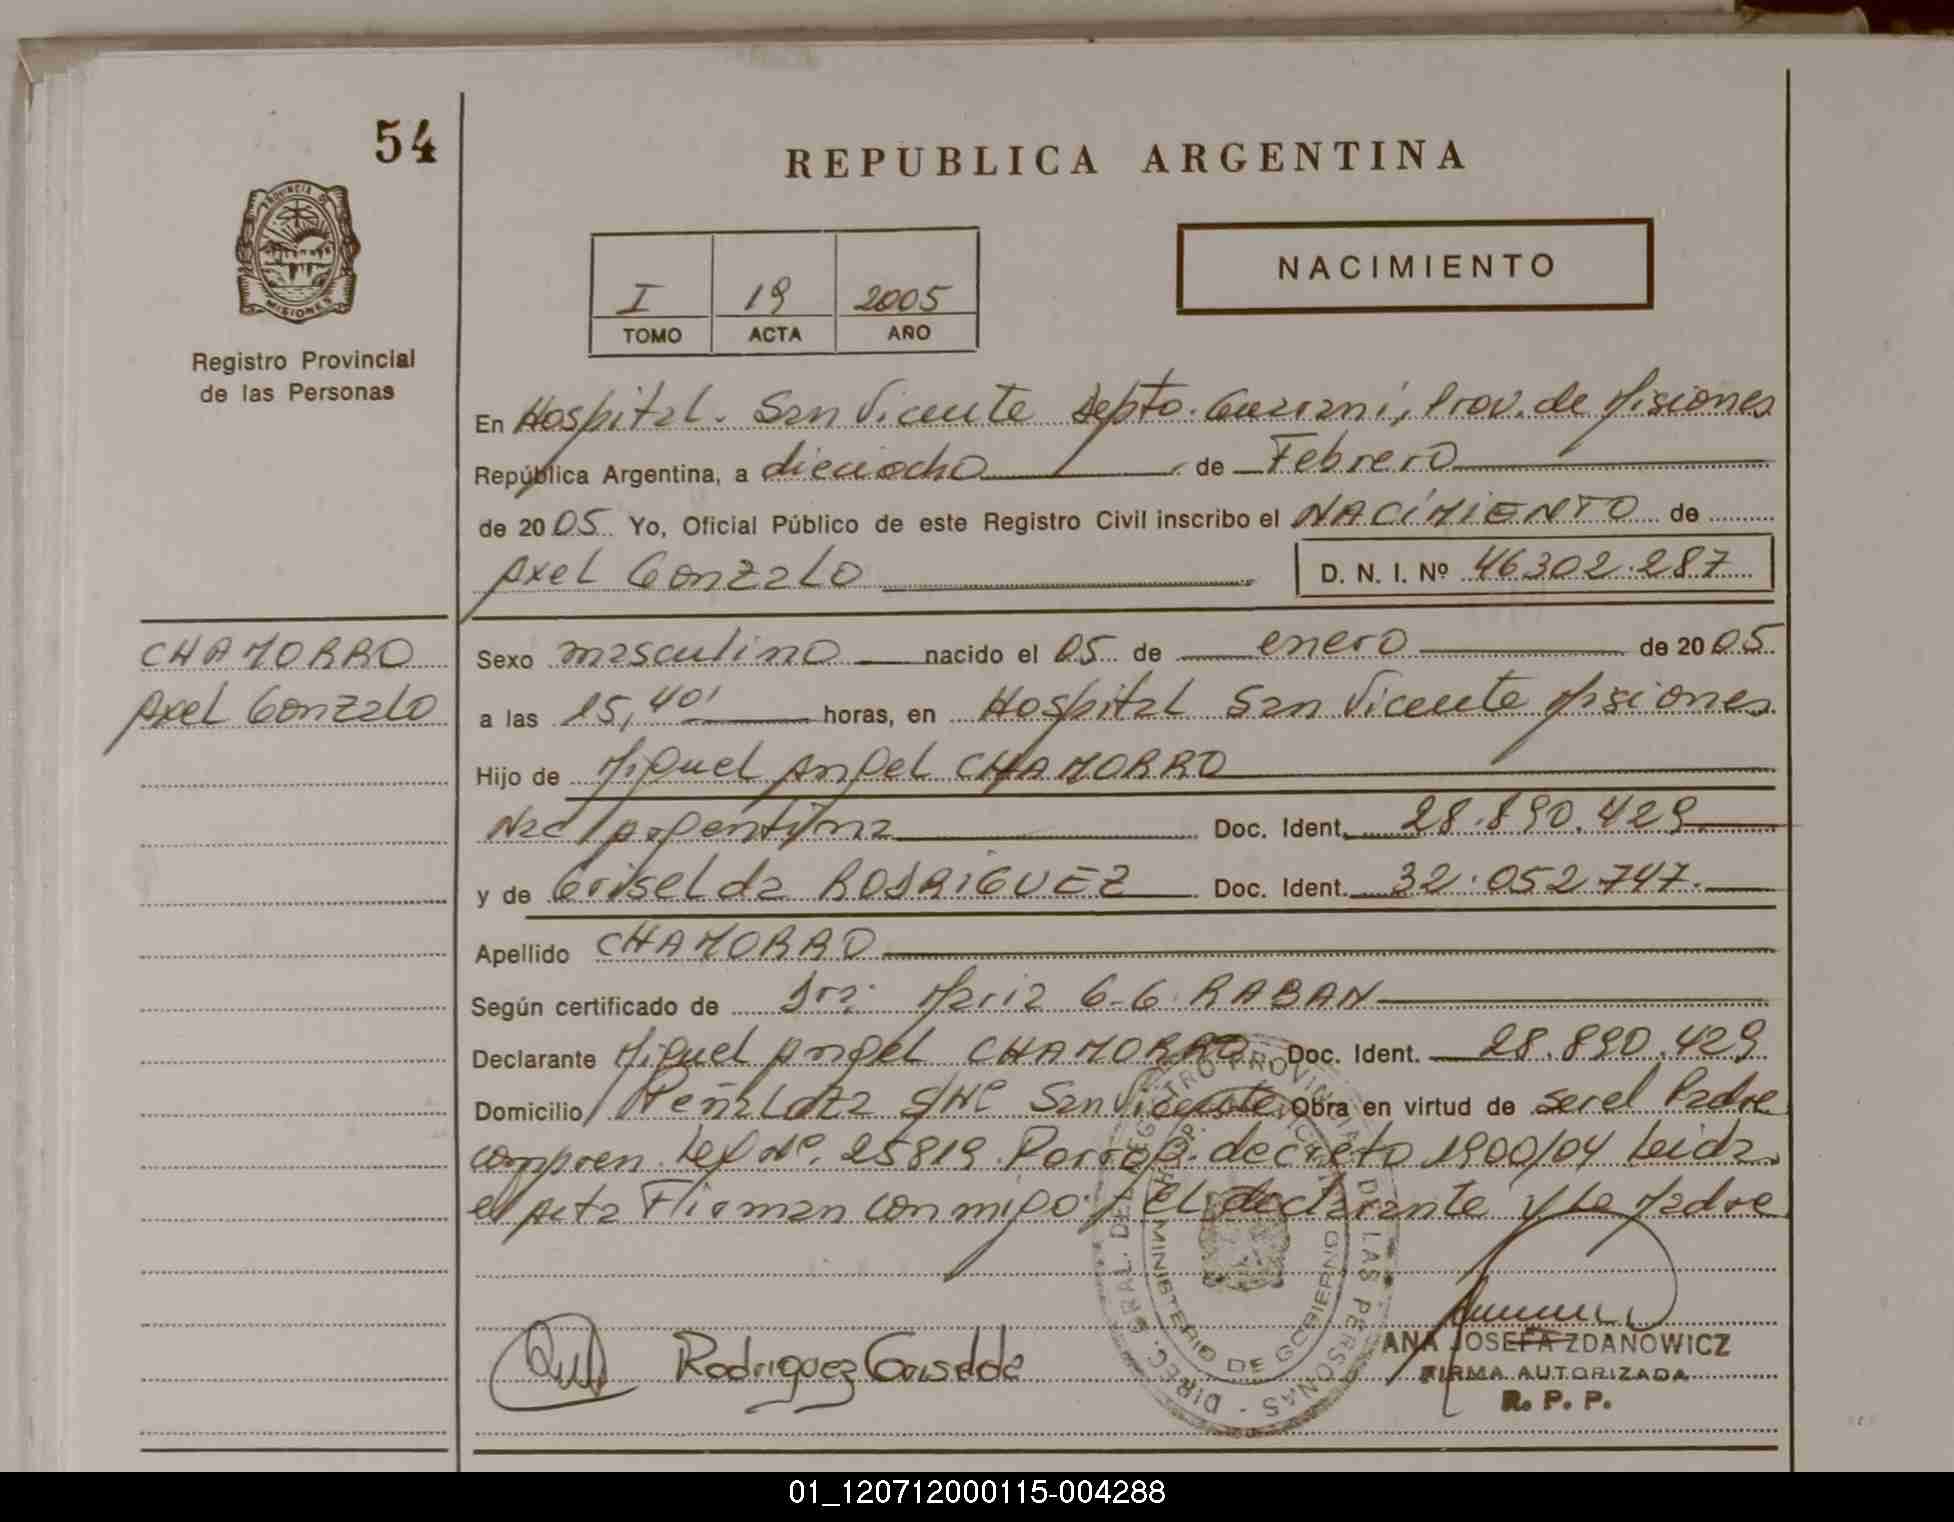 54
REPUBLICA ARGENTINA
PROVINCIA DE
MISIONES
Registro Provincial
de las Personas
NACIMIENTO
I 19 2005
TOMO ACTA AÑO
En Hospital. San Vicente Depto. Guarani, Prov. de Misiones
República Argentina, a dieciocho de Febrero
de 2005. Yo, Oficial Público de este Registro Civil inscribo el NACIMIENTO de
Axel Gonzalo D. N. I. Nº 46302.287
CHAMORRO
Axel Gonzalo
Sexo masculino nacido el 05 de enero de 2005
a las 15,40' horas, en Hospital San Vicente Misiones
Hijo de Miguel Angel CHAMORRO
Nac Argentina Doc. Ident. 28.890.429
y de Griselda RODRIGUEZ Doc. Ident. 32.052.747.
Apellido CHAMORRO
Según certificado de Dra. Maria G. G. RABAN
Declarante Miguel Angel CHAMORRO Doc. Ident. 28.890.429
Domicilio Peñaloza S/Nº San Vicente Obra en virtud de ser el Padre
compren. Ley Nº. 25819. Prorrog. decreto 1900/04 Leida
el Acta Firman conmigo, El declarante y La Madre
DIREC. GRAL. DEL REGISTRO PROVINCIAL DE LAS PERSONAS
MINISTERIO DE GOBIERNO
Rodriguez Griselda
ANA JOSEFA ZDANOWICZ
FIRMA AUTORIZADA
R. P. P.
01_120712000115-004288